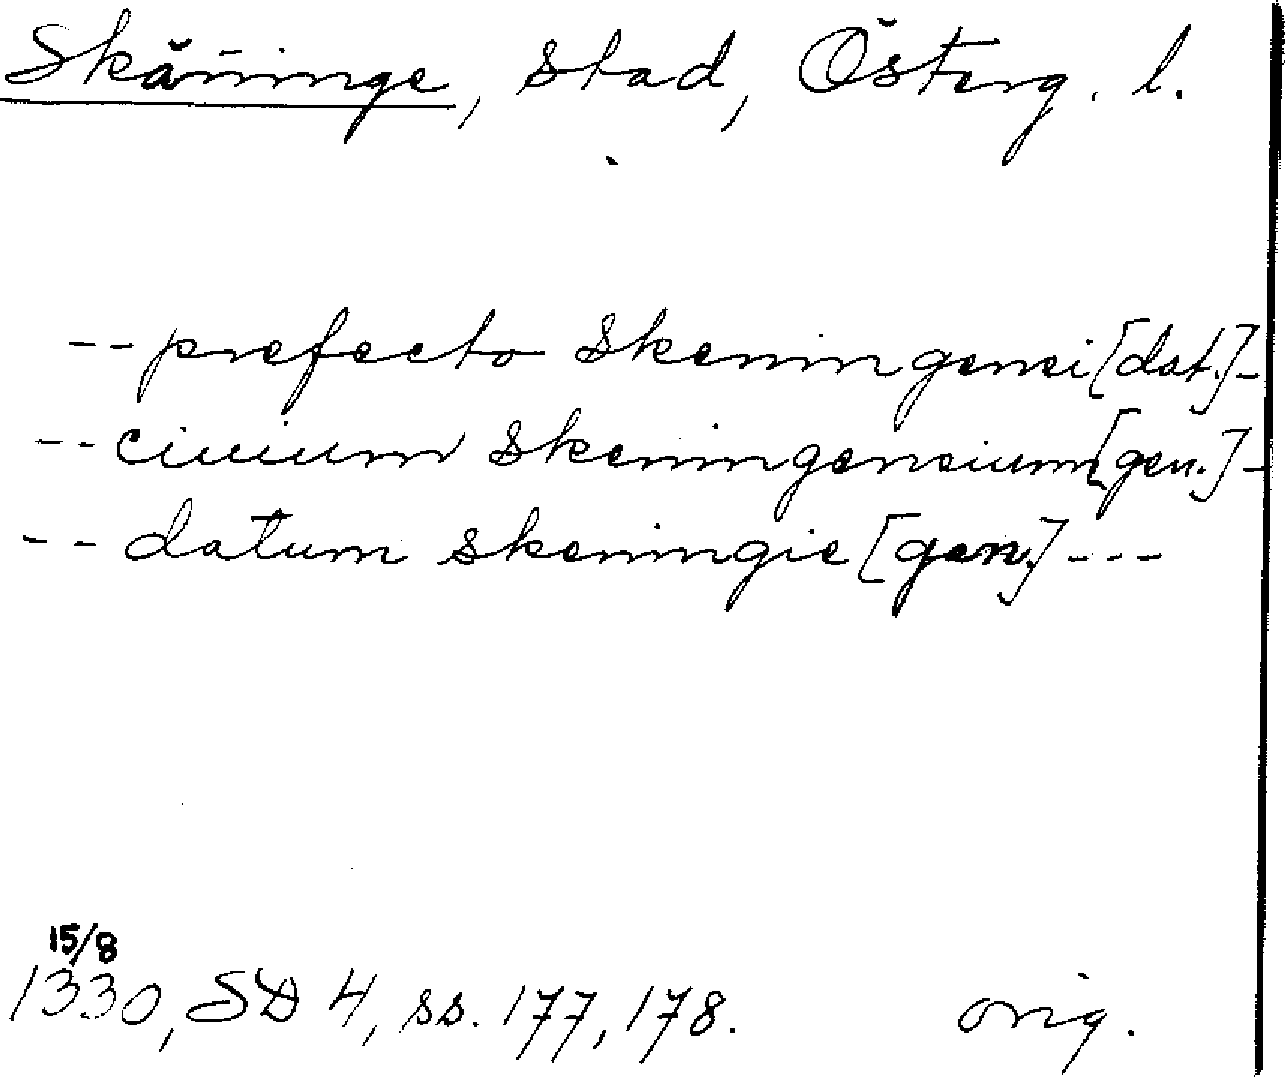 Skänninge, stad, Österg. l.
-- prefecto Skeningensi [dat.] -
-- ciuium Skeningensium [gen.] -
-- datum skeningie [gen.] ---
15/8
1330, SD 4, ss. 177, 178. orig.